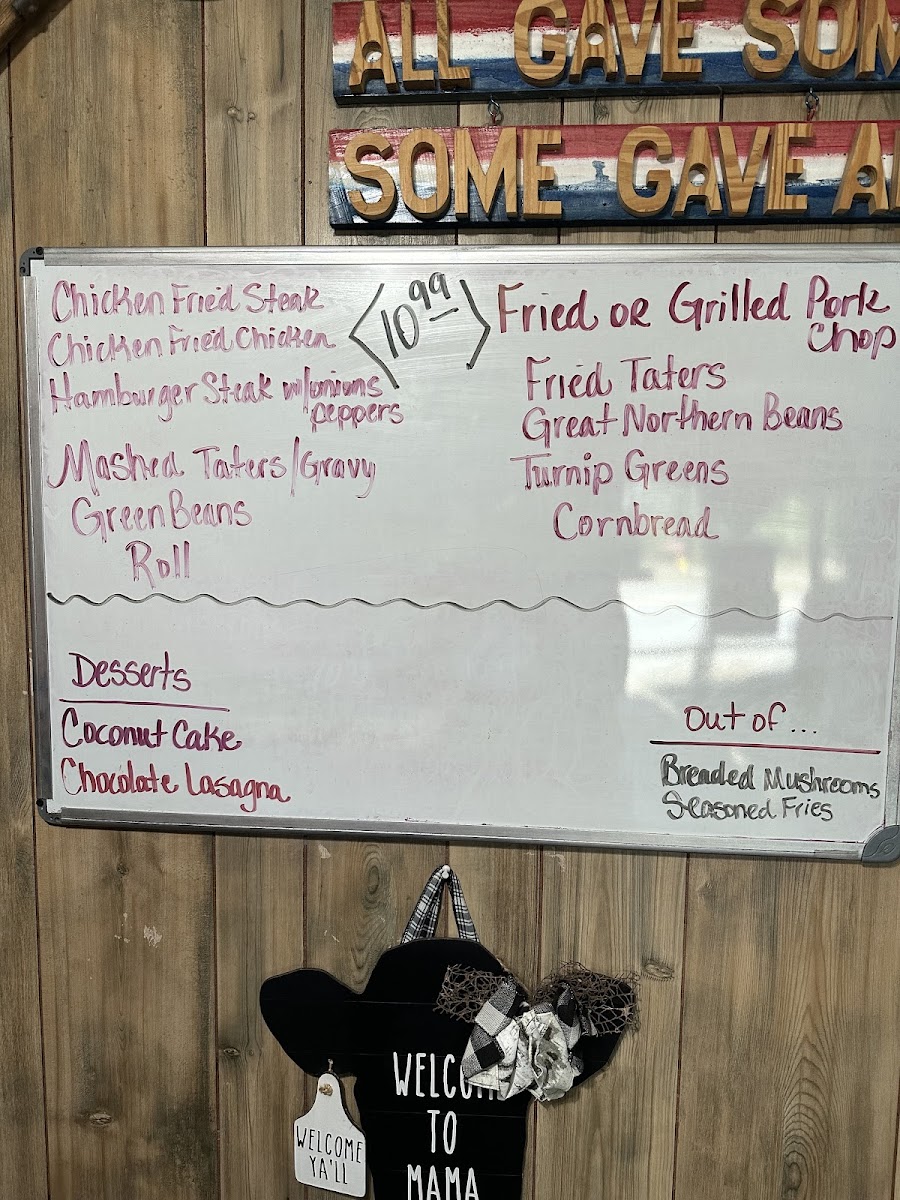 ALL GAVE SOM
SOME GAVE A
Chicken Fried Steak
Chicken Fried Chicken
Hamburger Steak w/onions
peppers
10 99
Mashed Taters/Gravy
Green Beans
Roll
Fried or Grilled Pork
Chop
Fried Taters
Great Northern Beans
Turnip Greens
Cornbread
Desserts
Coconut Cake
Chocolate Lasagna
Out of...
Breaded Mushrooms
Seasoned Fries
WELCOME
TO
MAMA
WELCOME
YA'LL